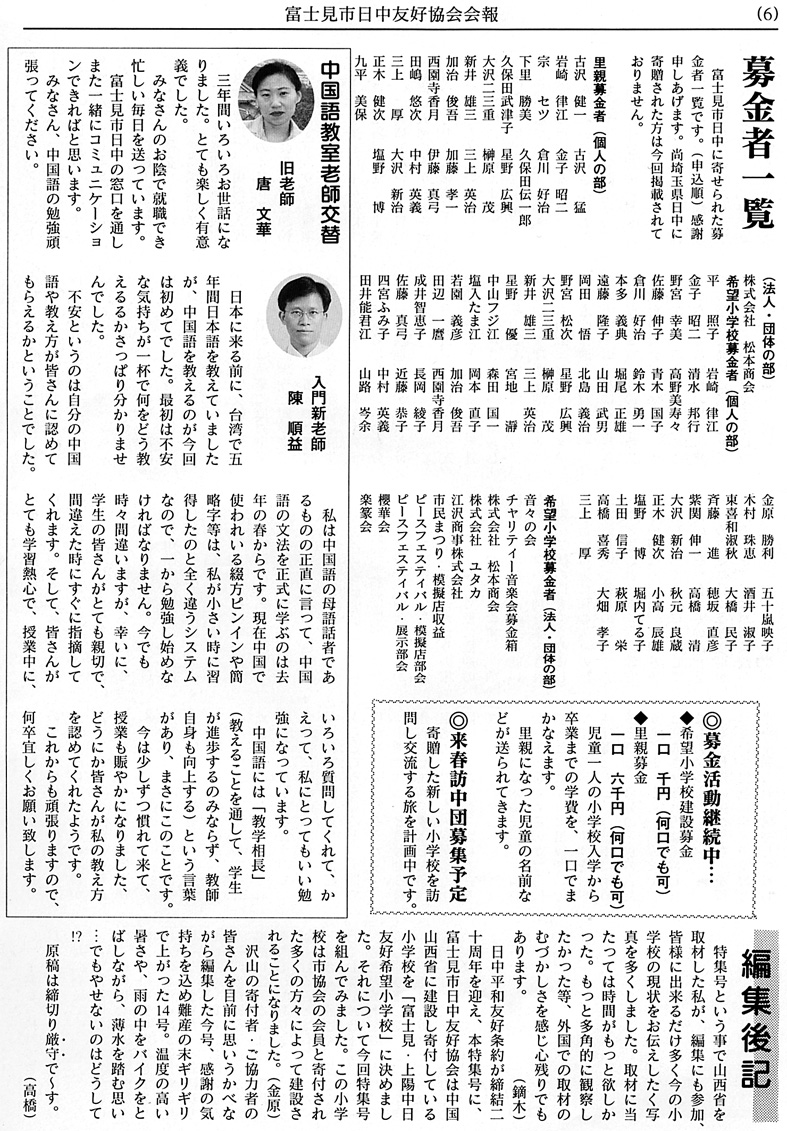 富士見市日中友好協会会報
(6)
募金者一覧
富士見市日中に寄せられた募
金者一覧です。（申込順）感謝
申しあげます。尚埼玉県日中に
寄贈された方は今回掲載されて
おりません。
里親募金者（個人の部）
古沢 健一 古沢 猛
岩崎 律江 金子 昭二
宗 セツ 倉川 好治
下里 勝美 久保田伝一郎
久保田武津子 星野 広興
大沢二三重 榊原 茂
新井 雄三 三上 英治
加治 俊吾 加藤 孝一
西園寺香月 伊藤 真弓
田嶋 悠次 中村 英義
三上 厚 大沢 新治
正木 健次 塩野 博
九平 美保
（法人・団体の部）
株式会社 松本商会
希望小学校募金者（個人の部）
平 照子 岩崎 律江
金子 昭二 清水 邦行
野宮 幸美 高野美寿々
佐藤 伸子 青木 国子
倉川 好治 鈴木 勇一
本多 義典 堀尾 正雄
遠藤 隆子 山田 武男
岡田 悟 北島 義治
野宮 松次 星野 広興
大沢二三重 榊原 茂
新井 雄三 三上 英治
星野 優 宮地 濤
中山フジ江 森田 国一
塩入たま江 岡本 直子
若園 義彦 加治 俊吾
田辺 一麿 西園寺香月
成井智恵子 長岡 綾子
佐藤 真弓 近藤 恭子
四宮ふみ子 中村 英義
田井能君江 山路 岑余
金原 勝利 五十嵐映子
木村 珠恵 酒井 淑子
東喜和淑秋 大橋 民子
斉藤 進 穂坂 直彦
紫関 伸一 高橋 清
大沢 新治 秋元 良蔵
正木 健次 小高 辰雄
塩野 博 堀内てる子
土田 信子 萩原 栄
高橋 喜秀 大畑 孝子
三上 厚
希望小学校募金者（法人・団体の部）
音々の会
チャリティー音楽会募金箱
株式会社 松本商会
株式会社 ユタカ
江沢商事株式会社
市民まつり・模擬店収益
ピースフェスティバル・模擬店部会
ピースフェスティバル・展示部会
櫻華会
楽篆会
◎募金活動継続中…
◆希望小学校建設募金
一口 千円（何口でも可）
◆里親募金
一口 六千円（何口でも可）
児童一人の小学校入学から
卒業までの学費を、一口でま
かなえます。
里親になった児童の名前な
どが送られてきます。
◎来春訪中団募集予定
寄贈した新しい小学校を訪
問し交流する旅を計画中です。
中国語教室老師交替
旧老師
唐 文華
三年間いろいろお世話にな
りました。とても楽しく有意
義でした。
みなさんのお陰で就職でき
忙しい毎日を送っています。
富士見市日中の窓口を通し
また一緒にコミュニケーショ
ンできればと思います。
みなさん、中国語の勉強頑
張ってください。
入門新老師
陳 順益
日本に来る前に、台湾で五
年間日本語を教えていました
が、中国語を教えるのが今回
は初めてでした。最初は不安
な気持ちが一杯で何をどう教
えるるかさっぱり分かりませ
んでした。
不安というのは自分の中国
語や教え方が皆さんに認めて
もらえるかということでした。
私は中国語の母語話者であ
るものの正直に言つて、中国
語の文法を正式に学ぶのは去
年の春からです。現在中国で
使われいる綴方ピンインや簡
略字等は、私が小さい時に習
得したのと全く違うシステム
なので、一から勉強し始めな
ければなりません。今でも
時々間違いますが、幸いに、
学生の皆さんがとても親切で、
間違えた時にすぐに指摘して
くれます。そして、皆さんが
とても学習熱心で、授業中に、
いろいろ質問してくれて、か
えって、私にとってもいい勉
強になっています。
中国語には「教学相長」
（教えることを通して、学生
が進歩するのみならず、教師
自身も向上する）という言葉
があり、まさにこのことです。
今は少しずつ慣れて来て、
授業も賑やかになりました、
どうにか皆さんが私の教え方
を認めてくれたようです。
これからも頑張りますので、
何卒宜しくお願い致します。
編集後記
特集号という事で山西省を
取材した私が、編集にも参加、
皆様に出来るだけ多く今の小
学校の現状をお伝えしたく写
真を多くしました。取材に当
たっては時間がもっと欲しか
った。もっと多角的に観察し
たかった等、外国での取材の
むづかしさを感じ心残りでも
あります。 （鏑木）
日中平和友好条約が締結二
十周年を迎え、本特集号に、
富士見市日中友好協会は中国
山西省に建設し寄付している
小学校を「富士見・上陽中日
友好希望小学校」に決めまし
た。それについて今回特集号
を組んでみました。この小学
校は市協会の会員と寄付され
た多くの方々によって建設さ
れることになりました。（金原）
沢山の寄付者・ご協力者の
皆さんを目前に思いうかべな
がら編集した今号、感謝の気
持ちを込め難産の末ギリギリ
で上がった14号。温度の高い
暑さや、雨の中をバイクをと
ばしながら、薄氷を踏む思い
…でもやせないのはどうして
!?
原稿は締切り厳守で～す。
（高橋）